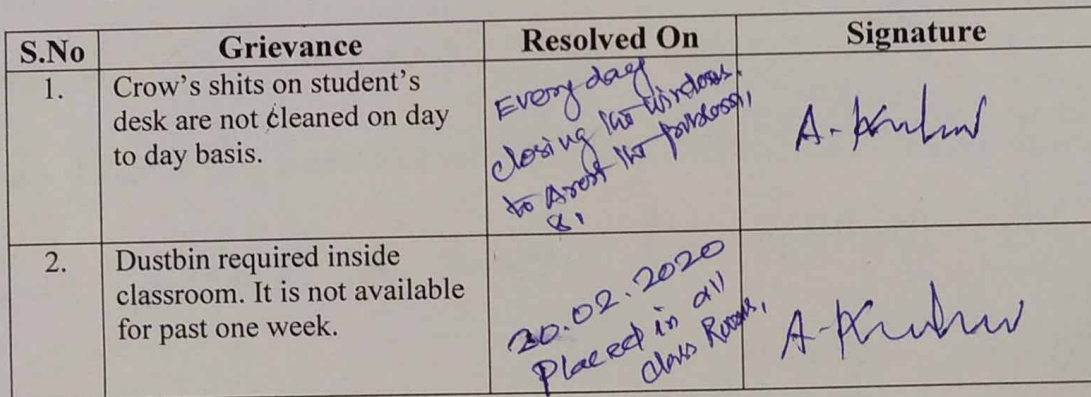 S.No Grievance Resolved On Signature
1. Crow's shits on student's
desk are not cleaned on day
to day basis.
Every day
closing the windows.
to Arest the
&,
A-
2. Dustbin required inside
classroom. It is not available
for past one week.
20.02.2020
Placed in all
class Rooms,
A-